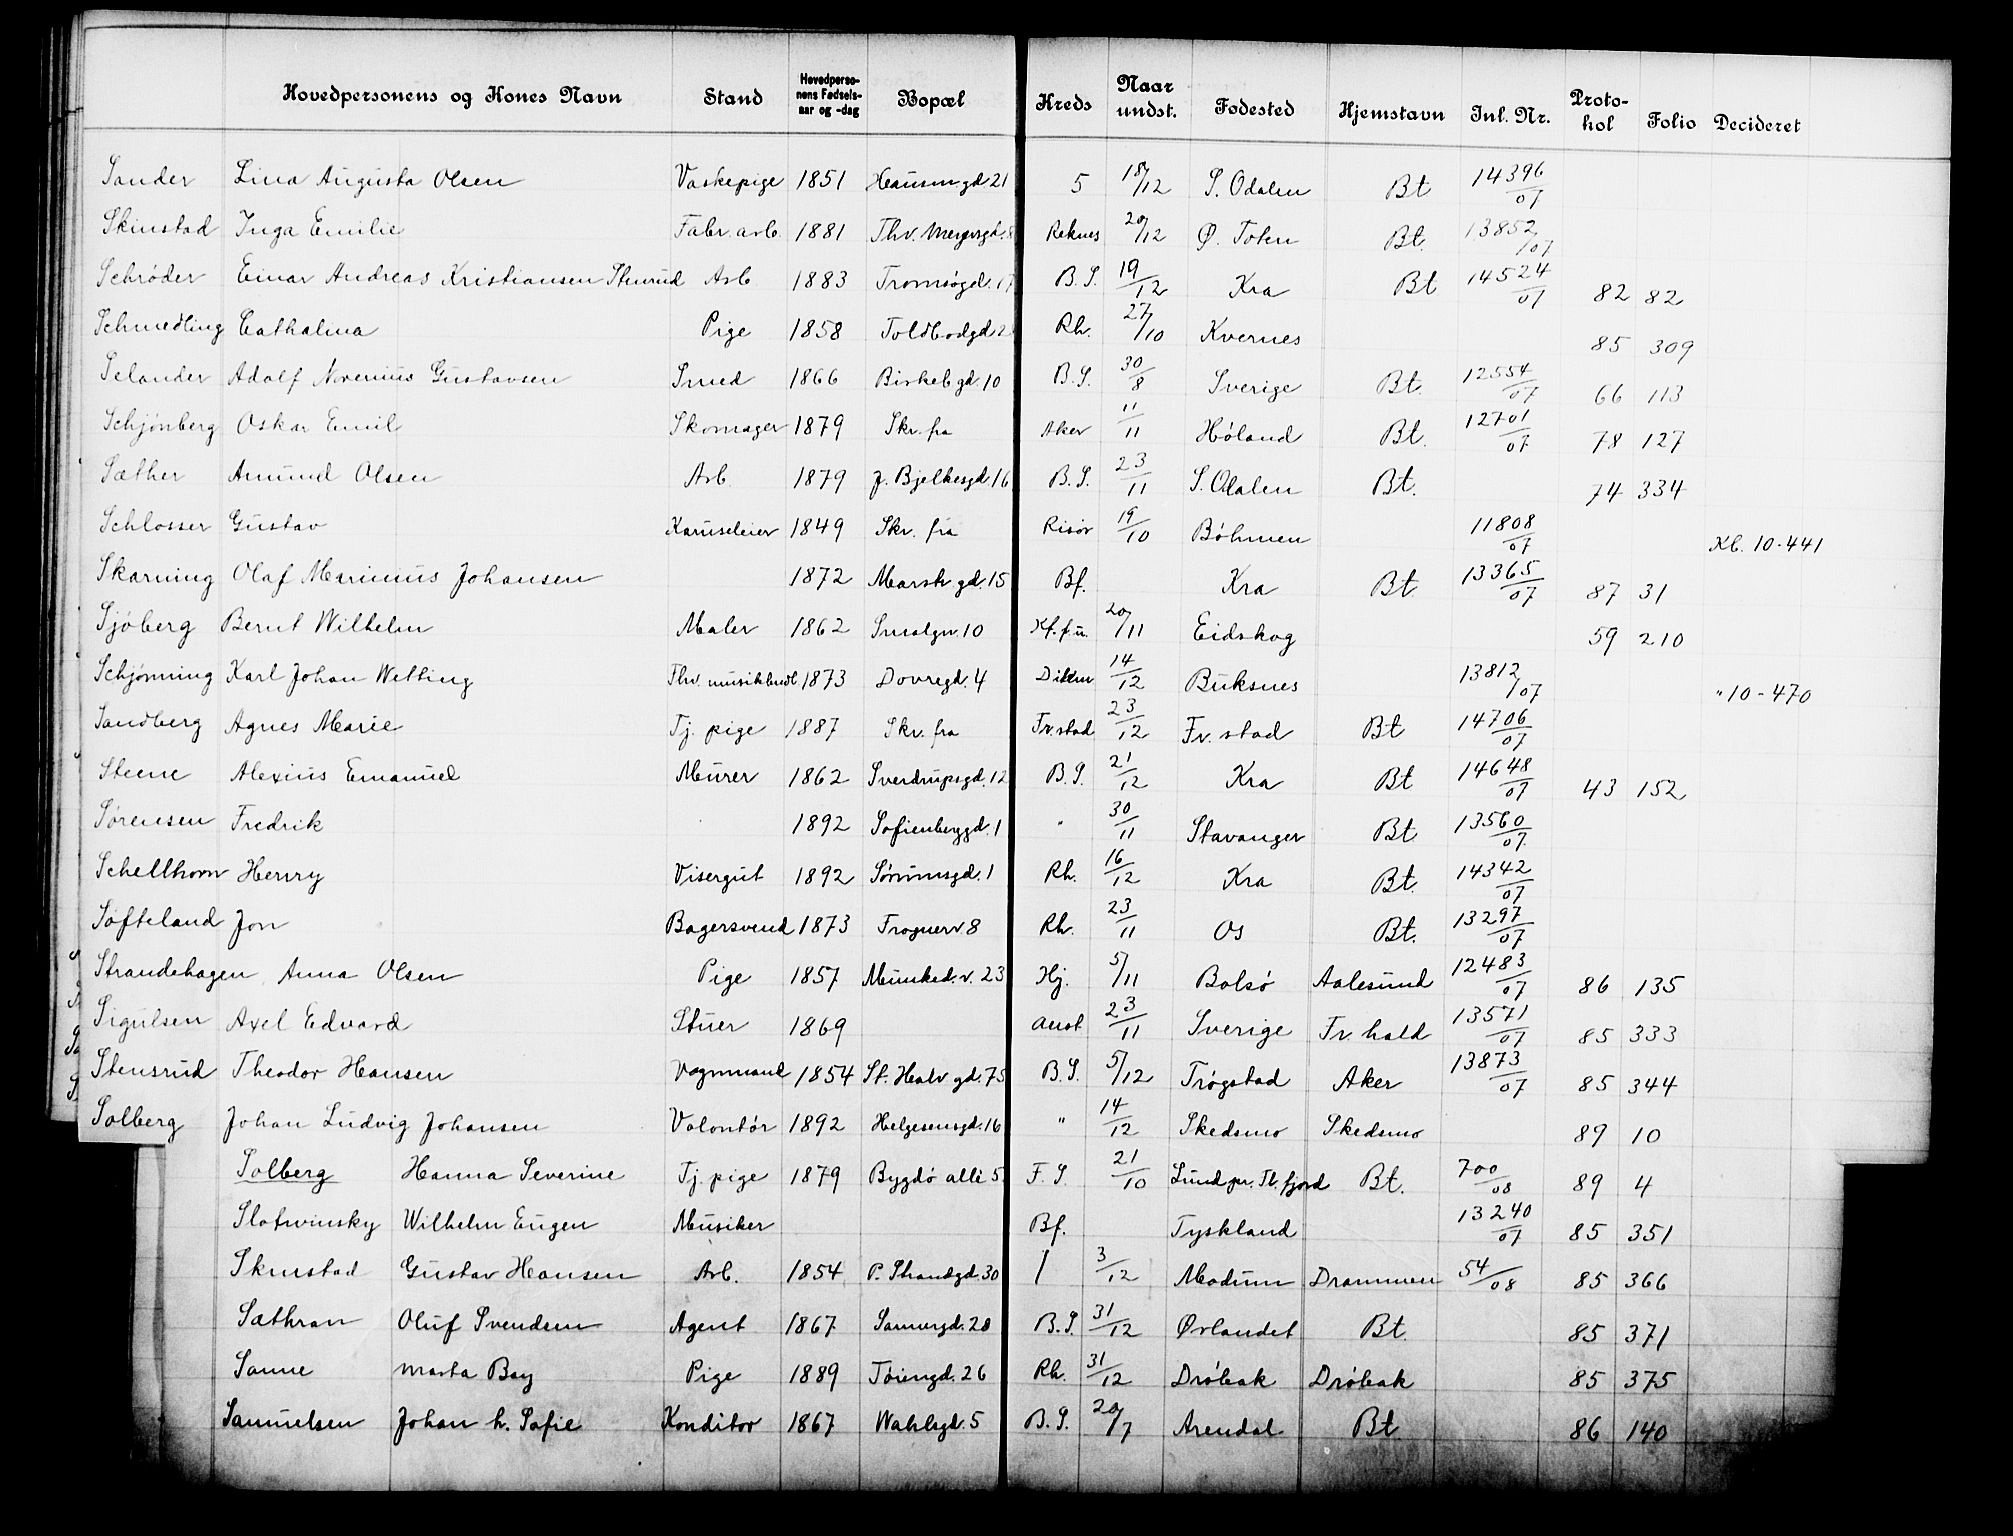 Hovedpersonens og Kones Navn Stand Hovedperso-nens Fødsels-aar og -dag Bopæl Kreds Naar undst. Fødested Hjemstavn Inl. Nr. Proto-kol Folio Decideret
Sander Lina Augusta Olsen Vaskepige 1851 Hausm.gd 21 5 18/12 S. Odalen Bt 14396/07
Skinstad Inga Emilie Fabr. arb. 1881 Thv. Meyersgd. 8 Reknes 20/12 Ø. Toten Bt. 13852/07
Schrøder Einar Andreas Kristiansen Stenrud Arb. 1883 Tromsøgd. 17 B.S. 19/12 Kra Bt 14524/07 82 82
Schmedling Cathalina Pige 1858 Toldbodgd 2 Rh. 27/10 Kvernes 85 309
Selander Adolf Novenius Gustavsen Smed 1866 Birkeb gd. 10 B.S. 30/8 Sverige Bt. 12554/07 66 113
Schjønberg Oskar Emil Skomager 1879 Skr. fra Aker 11/11 Høland Bt. 12701/07 78 127
Sæther Amund Olsen Arb. 1879 J. Bjelkesgd. 16 B.S. 23/11 S. Odalen Bt. 74 334
Schlosser Gustav Karuseleier 1849 Skr. fra Risør 19/10 Bøhmen 11808/07 Kb. 10-441
Skarning Olaf Marinius Johansen 1872 Marsk gd. 15 Bf. Kra Bt 13365/07 87 31
Sjøberg Bernt Wilhelm Maler 1862 Smalgn. 10 Kf. f. u. 20/11 Eidskog 59 210
Schjønning Karl Johan Wetting Thv. musikhndl. 1873 Dovregd. 4 14/12 Buksnes 13812/07 " 10-470
Sandberg Agnes Marie Tj. pige 1887 Skr. fra Fr.stad 23/12 Fr. stad Bt 14706/07
Steene Alexius Emanuel Murer 1862 Sverdrupsgd. 12 B.S. 21/12 Kra Bt 14648/07 43 152
Sørensen Fredrik 1892 Sofienberggd. 1 " 30/11 Stavanger Bt. 13560/07
Schellhorn Henry Visergut 1892 Sørumsgd. 1 Rh. 16/12 Kra Bt. 14342/07
Søfteland Jon Bagersvend 1873 Frognerv. 8 Rh. 23/11 Os Bt. 13297/07
Strandehagen Anna Olsen Pige 1857 Munked. v. 23 Hj. 5/11 Bolsø Aalesund 12483/07 86 135
Sigulsen Axel Edvard Stuer 1869 Anst 23/11 Sverige Fr. hald 13571/07 85 333
Stensrud Theodor Hansen Vognmand 1854 St. Halv gd. 75 B.S. 5/12 Trøgstad Aker 13873/07 85 344
Solberg Johan Ludvig Johansen Volontør 1892 Helgesensgd. 16 " 14/12 Skedsmo Skedsmo 89 10
Solberg Hanna Severine Tj. pige 1879 Bygdø allé 5 F.S. 21/10 Lund pr. Th. fjord Bt. 700/08 89 4
Slotwinsky Wilhelm Eugen Musiker Bf. Tyskland 13240/07 85 351
Skurstad Gustav Hansen Arb. 1854 P. Strandgd. 30 1 3/12 Modum Drammen 54/08 85 366
Sæthran Oluf Svendsen Agent 1867 Sannergd. 28 B.S. 31/12 Ørlandet Bt. 85 371
Sanne Marta Bay Pige 1889 Tøiengd. 26 Rh. 31/12 Drøbak Drøbak 85 375
Samuelsen Johan h. Sofie Konditor 1867 Wahlsgd. 5 B.S. 20/7 Arendal Bt 86 140